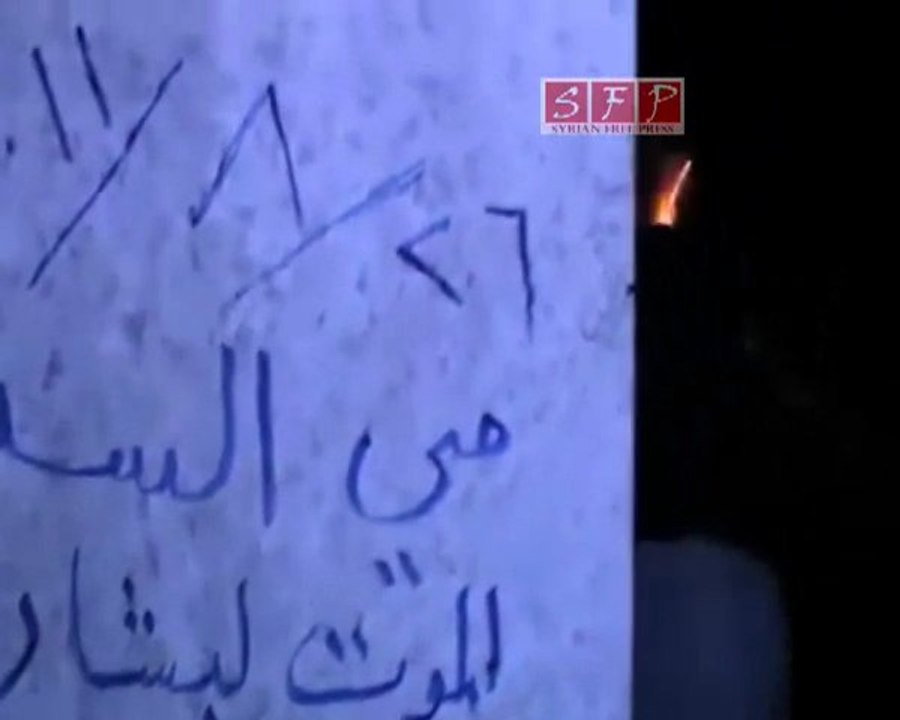 SFP
SYRIAN FREE PRESS
٢٦/٨/١١.
حي السد
الموت لبشار